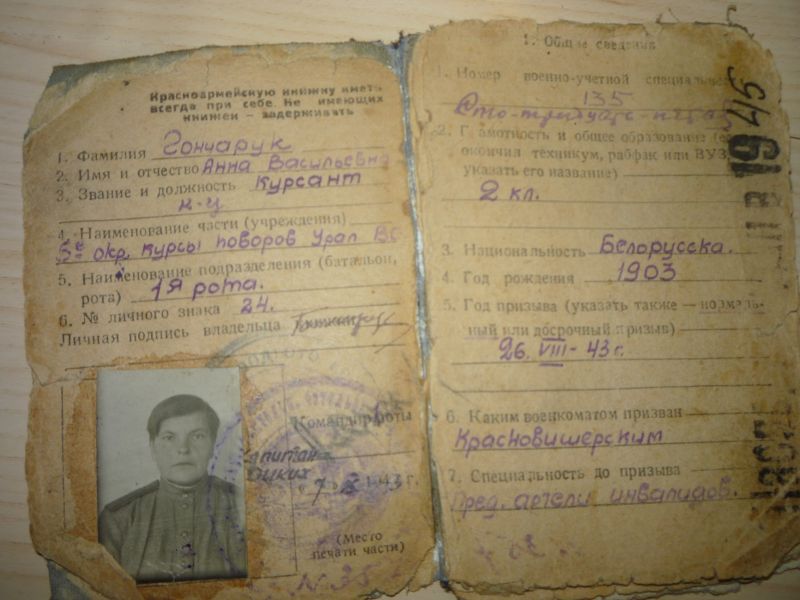 Красноармейскую книжку иметь
всегда при себе. Не имеющих
книжки — задерживать
1. Фамилия Гончарук
2. Имя и отчество Анна Васильевна
3. Звание и должность Курсант
к-ц
4. Наименование части (учреждения)
5е окр. Курсы поворов Урал ВО
5. Наименование подразделения (батальон,
рота) 1я рота.
6. № личного знака 24.
Личная подпись владельца
Командир роты
Капитан
7 43 г.
(Место
печати части)
№ 35
1. Общие сведения
1. Номер военно-учетной специальности
135
Сто-тридцать-пять
2. Грамотность и общее образование
окончил техникум, рабфак или ВУЗ,
указать его название)
2 кл.
3. Национальность Белорусска.
4. Год рождения 1903
5. Год призыва (указать также — нормаль-
ный или досрочный призыв)
26. VIII - 43 г.
6. Каким военкоматом призван
Красновишерским
7. Специальность до призыва
Пред. артели инвалидов.
1945